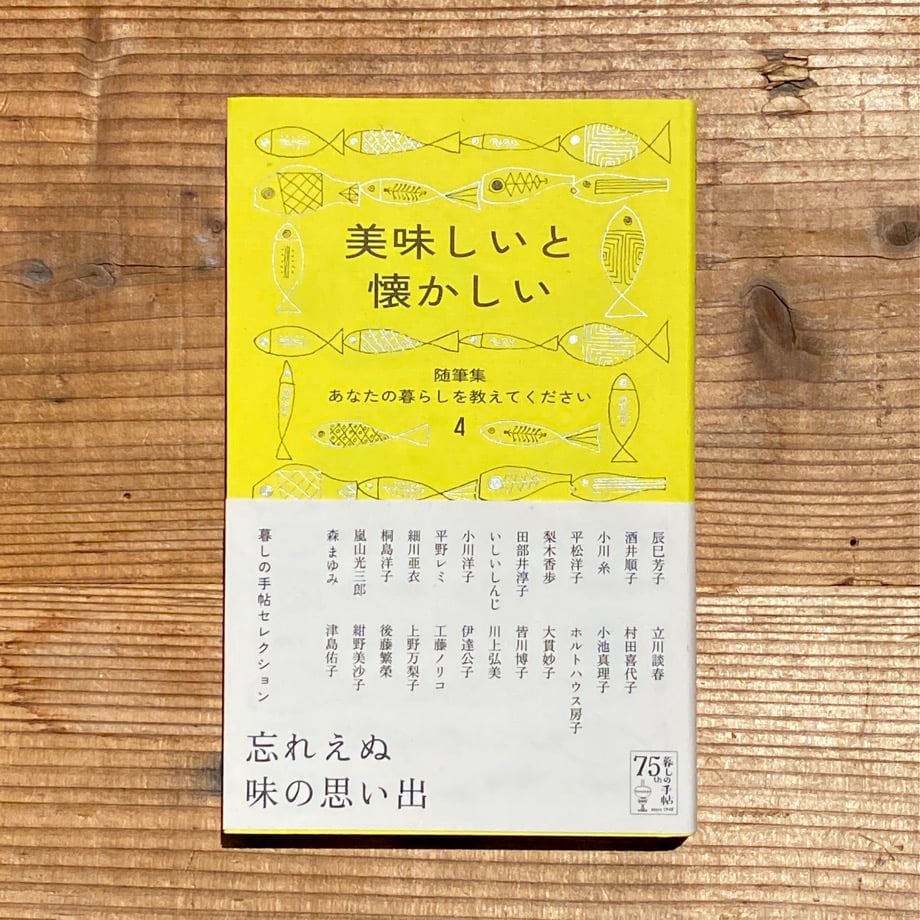 美味しいと
懐かしい
随筆集
あなたの暮らしを教えてください
4
辰巳芳子
酒井順子
小川 糸
平松洋子
梨木香歩
田部井淳子
いしいしんじ
小川洋子
平野レミ
細川亜衣
桐島洋子
嵐山光三郎
森 まゆみ
立川談春
村田喜代子
小池真理子
ホルトハウス房子
大貫妙子
皆川博子
川上弘美
伊達公子
工藤ノリコ
上野万梨子
後藤繁榮
紺野美沙子
津島佑子
暮しの手帖セレクション
忘れえぬ
味の思い出
75th
暮しの手帖
since 1948